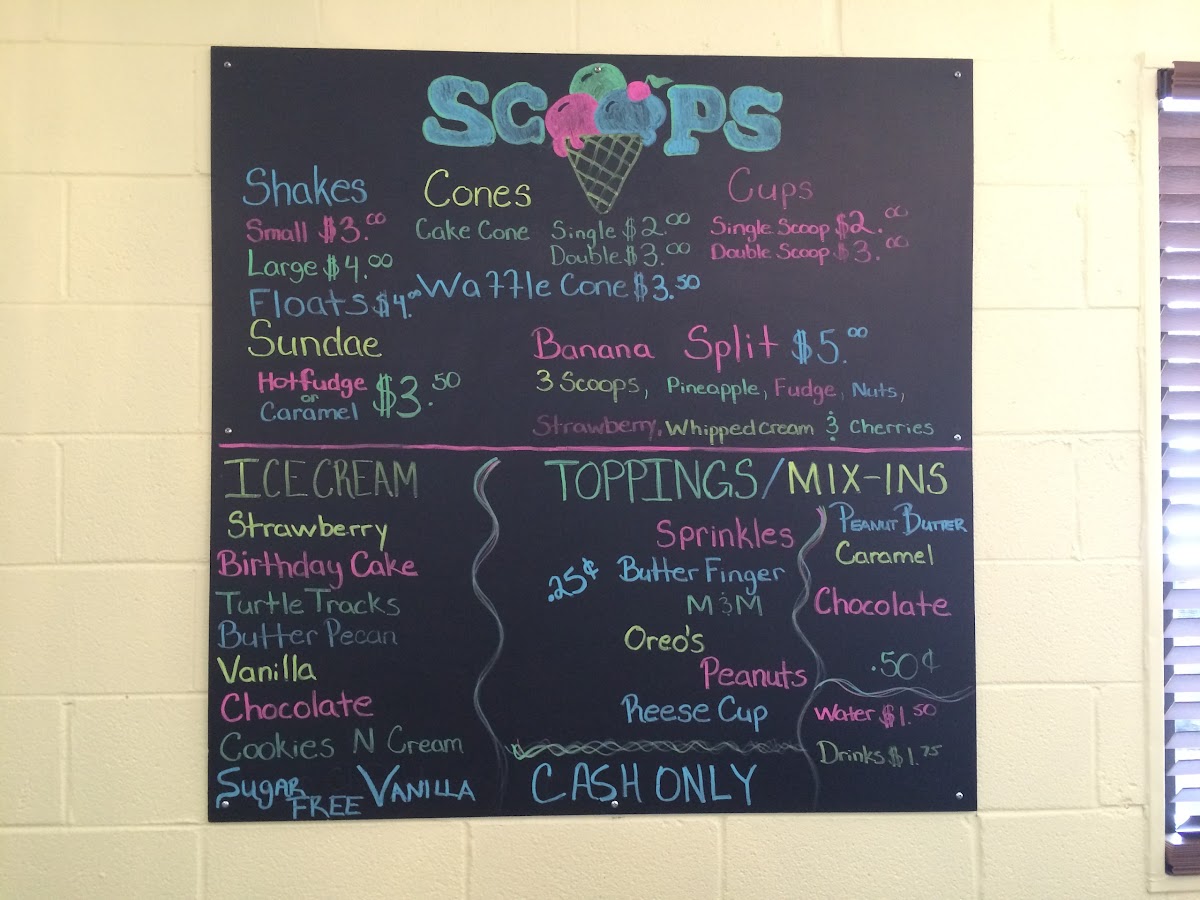 SCOOPS
Shakes
Small $3.00
Large $4.00
Floats $4.00
Cones
Cake Cone Single $2.00
Double $3.00
Waffle Cone $3.50
Cups
Single Scoop $2.00
Double Scoop $3.00
Sundae
Hotfudge
or
Caramel $3.50
Banana Split $5.00
3 Scoops, Pineapple, Fudge, Nuts,
Strawberry, Whipped Cream & Cherries
ICE CREAM
Strawberry
Birthday Cake
Turtle Tracks
Butter Pecan
Vanilla
Chocolate
Cookies N Cream
SUGAR FREE VANILLA
TOPPINGS/MIX-INS
.25¢
Sprinkles
Butter Finger
M&M
Oreo's
Peanuts
Reese Cup
PEANUT BUTTER
Caramel
Chocolate
.50¢
Water $1.50
Drinks $1.75
CASH ONLY